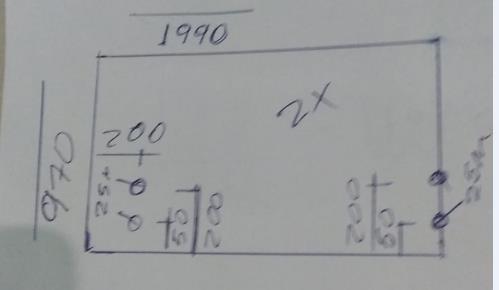 1990
2x
970
200
50
200
200
50